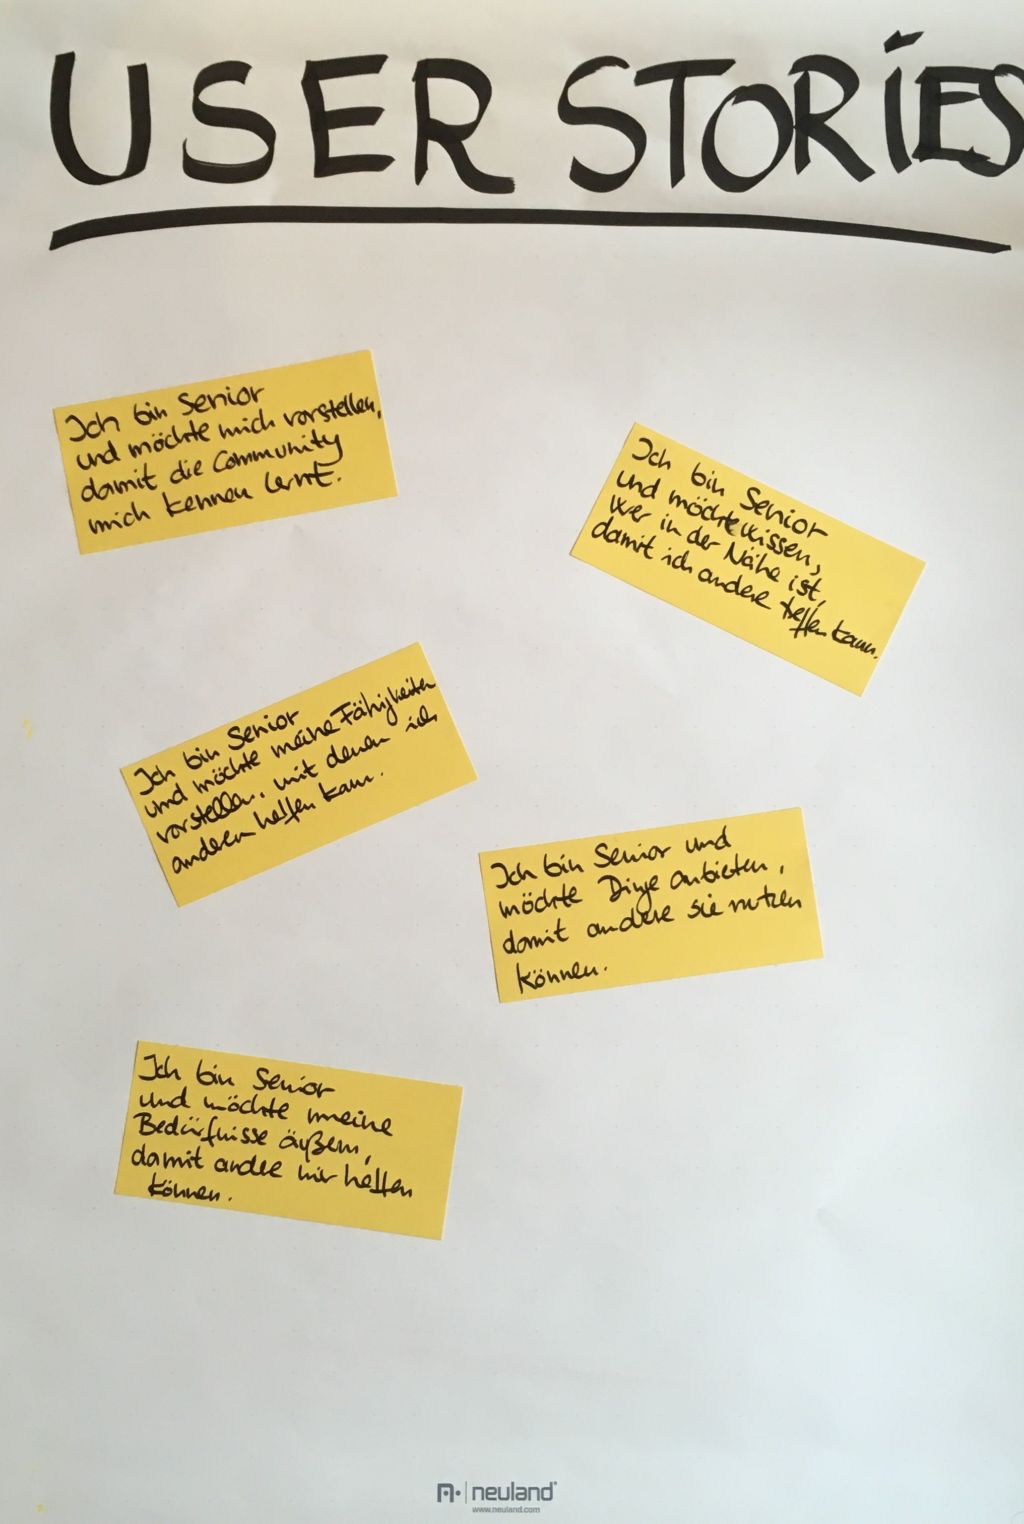 USER STORIES
Ich bin Senior
und möchte mich vorstellen,
damit die Community
mich kennen lernt.
Ich bin Senior
und möchte wissen,
wer in der Nähe ist,
damit ich andere treffen kann.
Ich bin Senior
und möchte meine Fähigkeiten
vorstellen, mit denen ich
anderen helfen kann.
Ich bin Senior und
möchte Dinge anbieten,
damit andere sie nutzen
können.
Ich bin Senior
und möchte meine
Bedürfnisse äußern,
damit andere mir helfen
können.
neuland
www.neuland.com